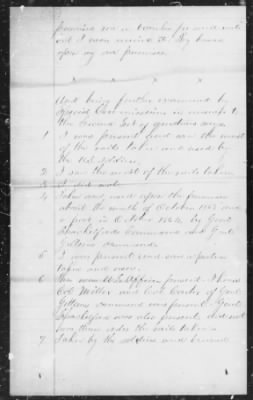 promised me a voucher for said rails
but I never received it. They burned
upon my own premises.
x x x x
And being further examined by
Special Commissioner in regard to
the Second Set of questions says
1 I was present and saw the most
of the rails taken and used by
the U.S. soldiers.
2 I saw the most of the rails taken
3 I did not
4 Taken and used upon the premises
about the month of October 1863 and
a part in October 1864 by Genl
Shackelfords Command and Genl
Gillems command.
5 I was present and saw a portion
taken and more.
6 There were officers present. I know
Col Miller and Col Carter of Genl
Gillems command was present. Genl
Shackelford was also present did not
hear them order the rails taken
7 Taken by the soldiers and burned